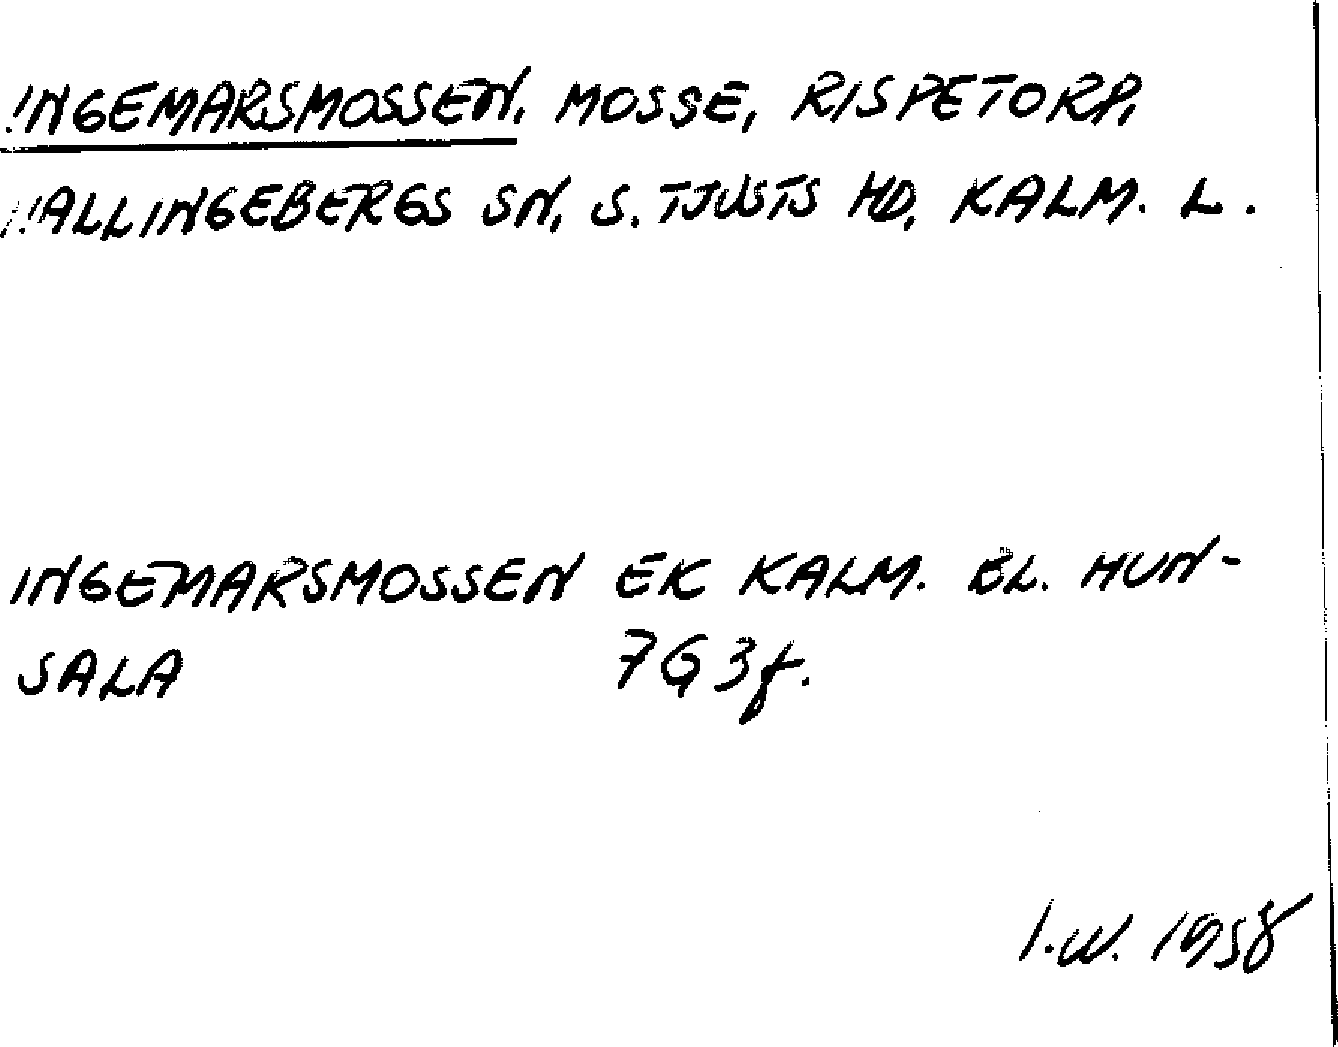 INGEMARSMOSSEN, MOSSE, RISPETORP,
HALLINGEBERGS SN, S. TJUSTS HD, KALM. L.
INGEMARSMOSSEN EK KALM. BL. HUN-
SALA 7G3f.
I.W. 1958